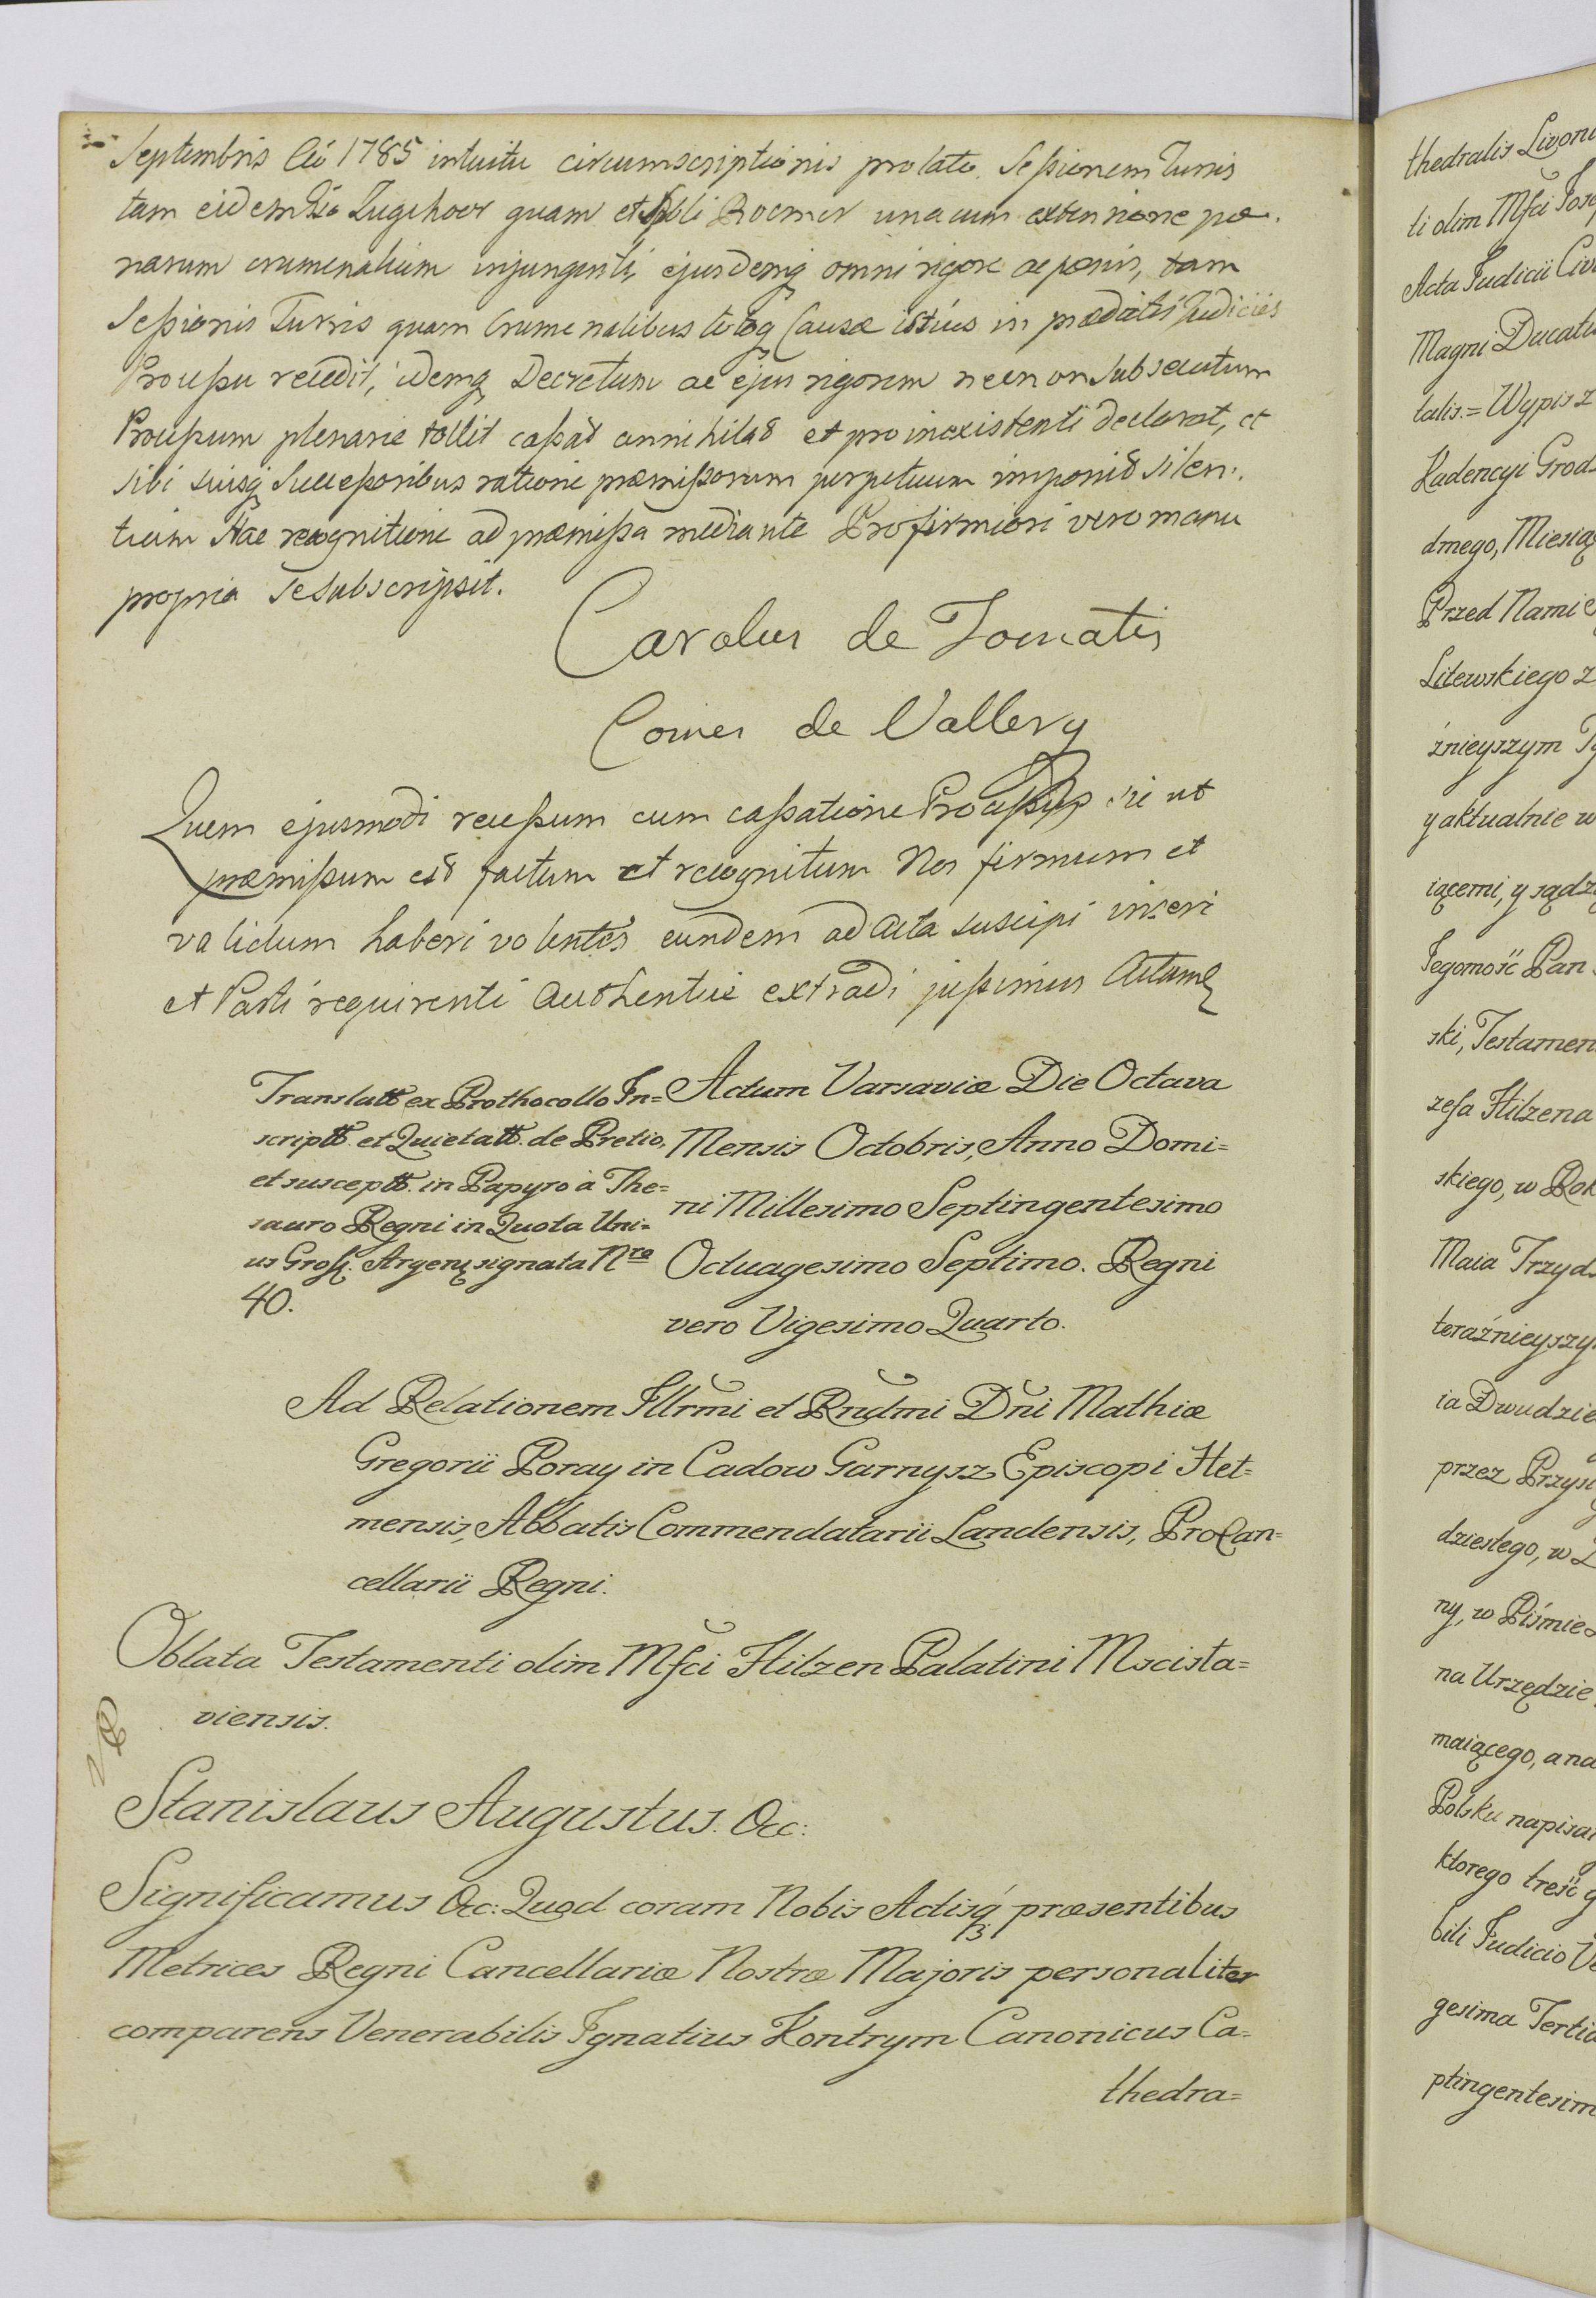 Septembris Cũ 1785 intuitu circumscriptionis prolato Sessionem Turris
tam eidem Lugihoer quam et Nbli Roemer unacum extensione pœ-
narum crumenalium injungenti, ejusdemq omni rigore ac pœnis, tam
Sessionis Turris quam Crumenalibus totoq Causæ istius in prædictis Judiciis
Processu recedit, idemq Decretum ac ejus rigorem necnon subsecutum
Processum plenarie tollit cassat annihilat et pro inexistenti declarat, et
sibi suisq Successoribus ratione præmissorum perpetuum imponit silen-
tium Hac recognitione ad præmissa mediante Pro firmiori vero manu
propria se subscripsit.
Carolus de Tomatis
Comes de Vallery
Quem ejusmodi recessum cum cassatione Processus sic ut
præmissum est factum et recognitum Nos firmum et
validum haberi volentes eundem ad acta suscipi inseri
et Parti requirenti authentice extradi jussimus Actum
Translatt ex Prothocollo In=
scriptt. et Quietatt. de Pretio,
et susceptt. in Papyro à The=
sauro Regni in Quota Uni=
us Grossi Argen signata Nro
40.
Actum Varsaviæ Die Octava
Mensis Octobris, Anno Domi=
ni Millesimo Septingentesimo
Octuagesimo Septimo. Regni
vero Vigesimo Quarto.
Ad Relationem Illrmi et Rndmi Dni Mathiæ
Gregorii Poray in Cadow Garnysz Episcopi Het=
mensis, Abbatis Commendatarii Landensis, ProCan=
cellarii Regni.
Oblata Testamenti olim Mfci Hilzen Palatini Mscista=
viensis.
Stanislaus Augustus. &c:
Significamus &c: Quod coram Nobis Actisq præsentibus
Metrices Regni Cancellariæ Nostræ Majoris personaliter
comparens Venerabilis Ignatius Kontrym Canonicus Ca=
thedra=
thedralis Livoni
ti olim Mfci Jose
Acta Judicii Civi
Magni Ducatu
talis.= Wypis z
Kadencyi Grods
dmego, Miesią
Przed Namie
Litewskiego z
źnieyszym Ty
y aktualnie w
iącemi, y sądz
Jegomość Pan
ski, Testamen
zesa Hilzena
skiego, w Rok
Maia Trzyd
teraźnieyszy
ia Dwudzie
przez Przys
dziestego, w
ny, w Piśmie
na Urzędzie
maiącego, a na
Polsku napisan
ktorego treść
bili Judicio Ve
gesima Tertia
ptingentesim